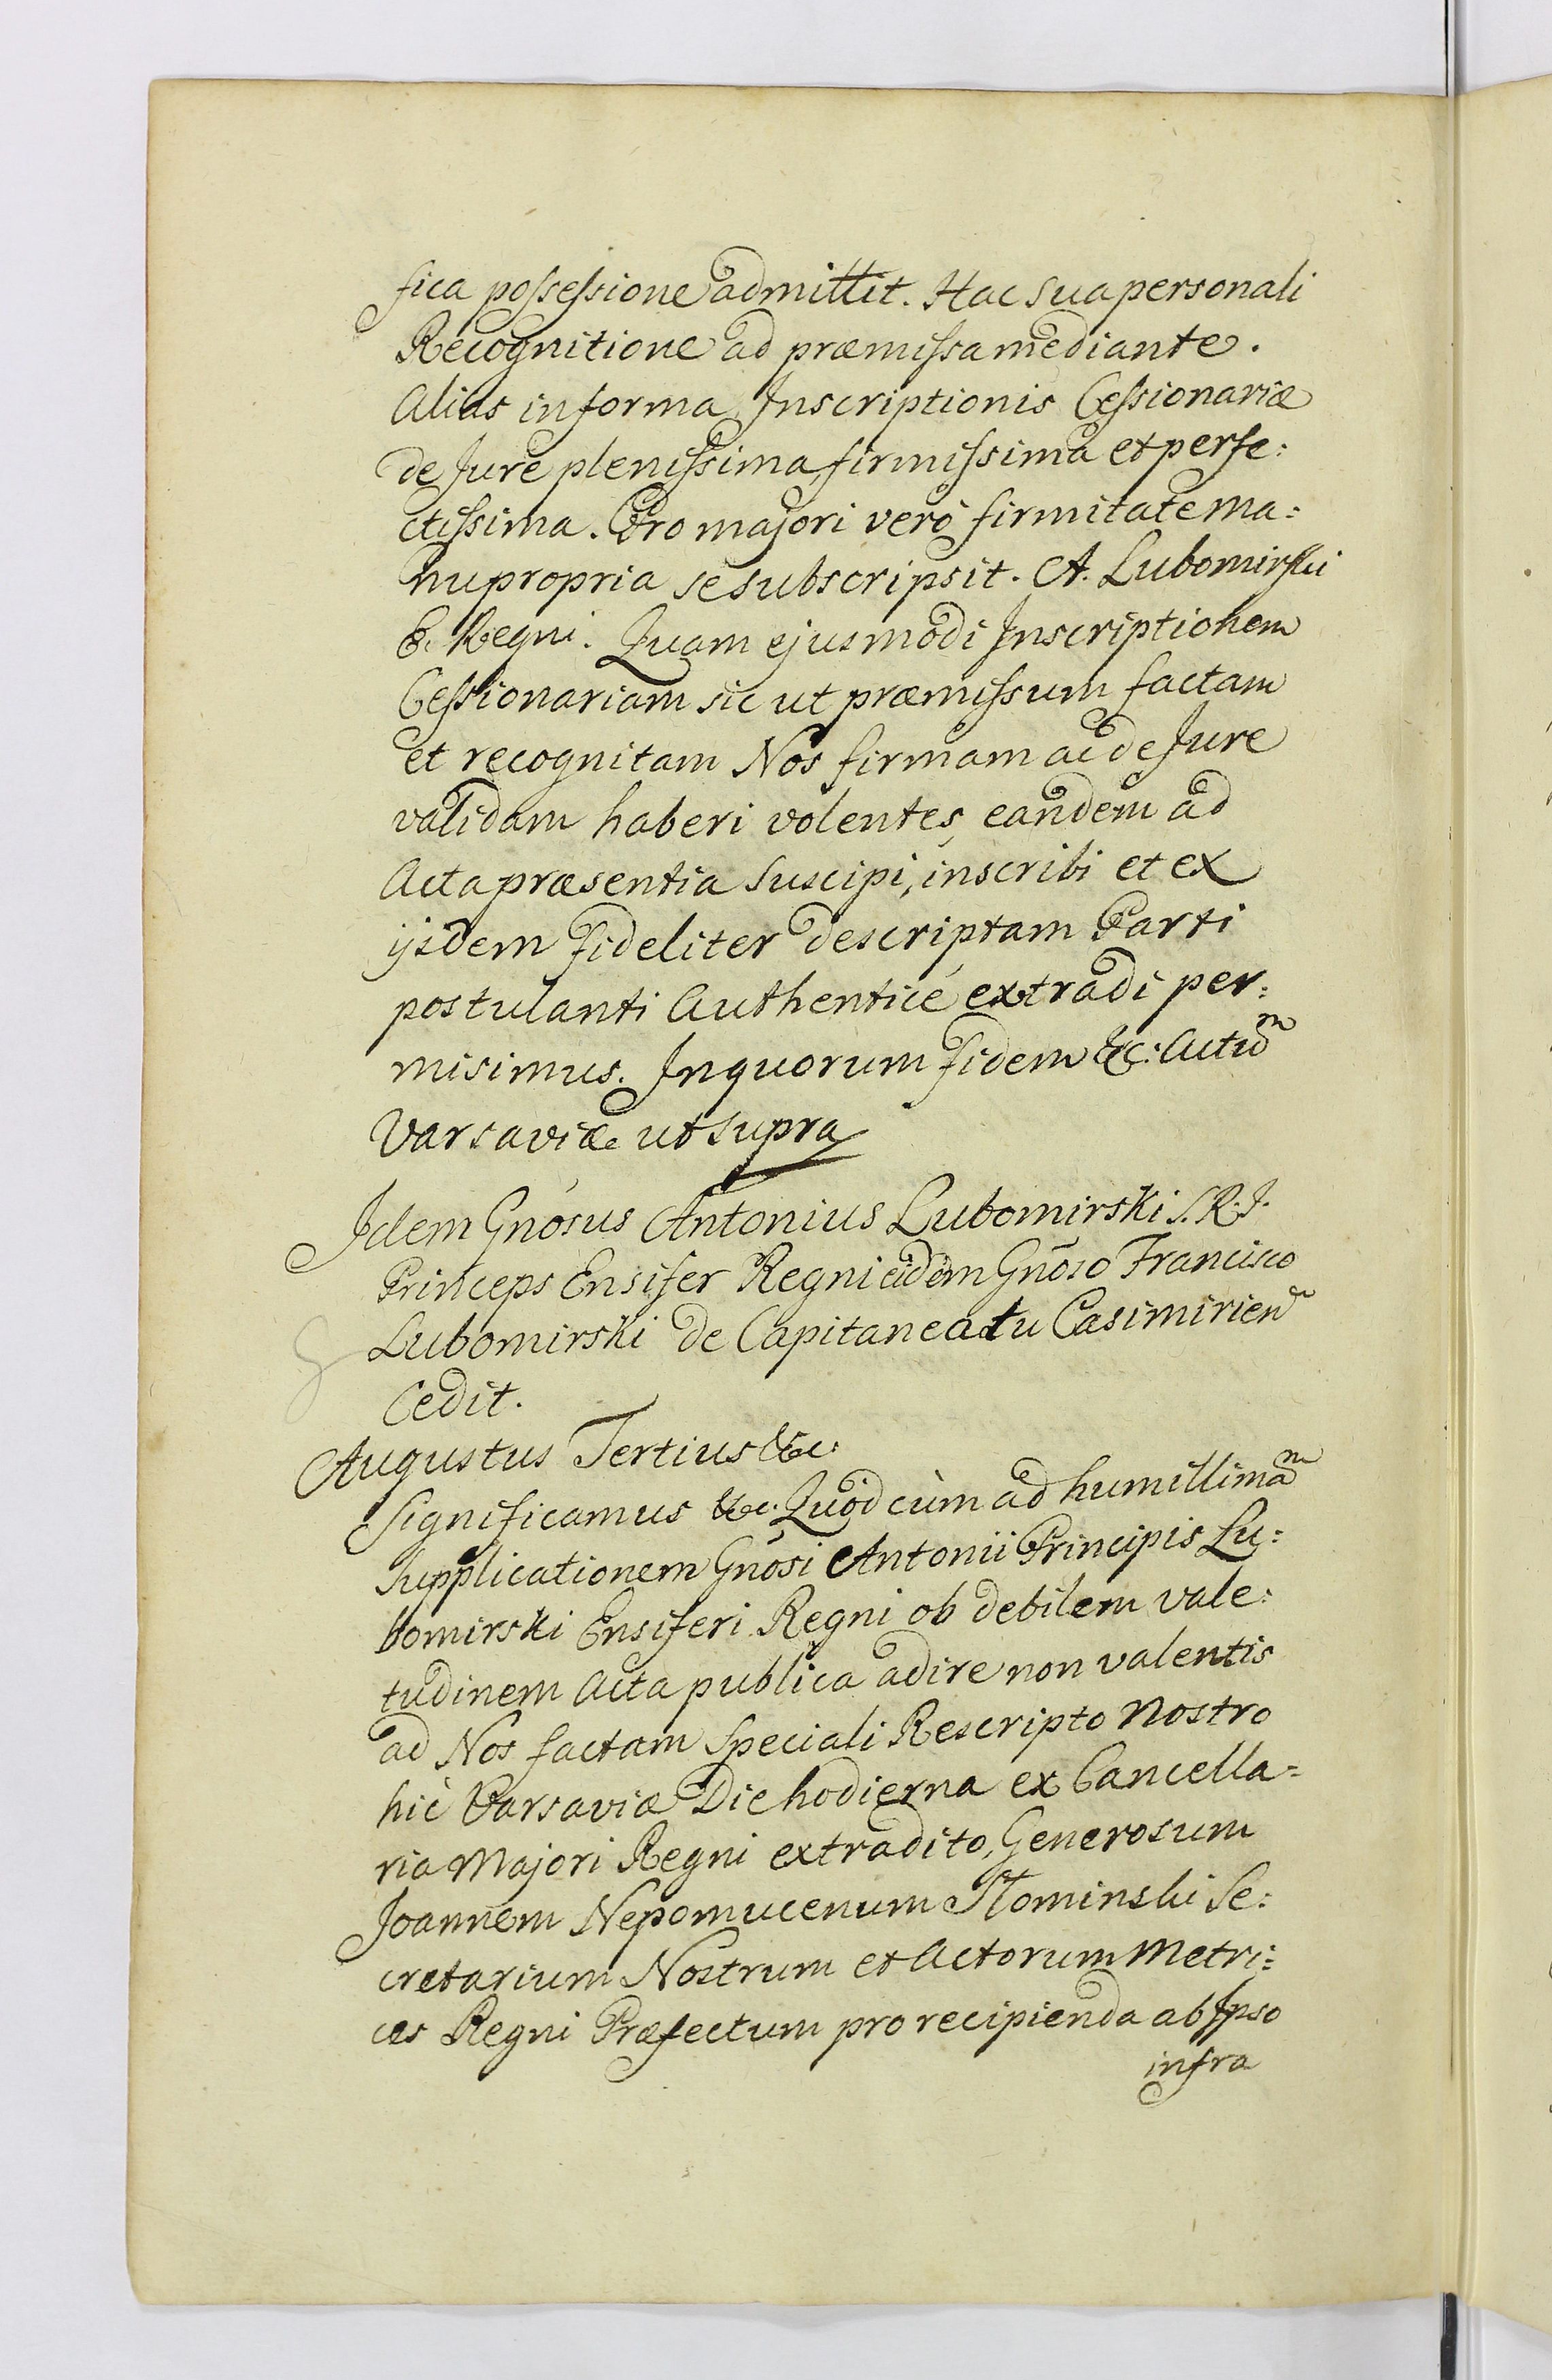 fica possessione admittit. Hac sua personali
Recognitione ad præmissa mediante.
Alias in forma Inscriptionis Cessionariæ
de Jure plenissima, firmissima et perfe:
ctissima. Pro majori verò firmitate ma:
nu propria se subscripsit. A. Lubomirski
E. Regni. Quam ejusmodi Inscriptionem
Cessionariam sic ut præmissum factam
et recognitam Nos firmam ac de Jure
validam haberi volentes, eandem ad
Acta præsentia suscipi, inscribi et ex
ijsdem fideliter descriptam Parti
postulanti Authenticè extradi per:
misimus. In quorum fidem &c: Actũ
Varsaviæ ut supra
Idem Gnósus Antonius Lubomirski S. R. I.
Princeps Ensifer Regni eidem Gnõso Francisco
Lubomirski de Capitaneatu Casimirien̄
Cedit.
Augustus Tertius &c.
Significamus &c. Quòd cùm ad humillimam
supplicationem Gnõsi Antonii Principis Lu:
bomirski Ensiferi Regni ob debilem vale:
tudinem Acta publica adire non valentis
ad Nos factam speciali Rescripto Nostro
hìc Varsaviæ Die hodierna ex Cancella:
ria Majori Regni extradito, Generosum
Joannem Nepomucenum Słominski Se:
cretarium Nostrum et Actorum Metri:
ces Regni Præfectum pro recipienda ab Ipso
infra